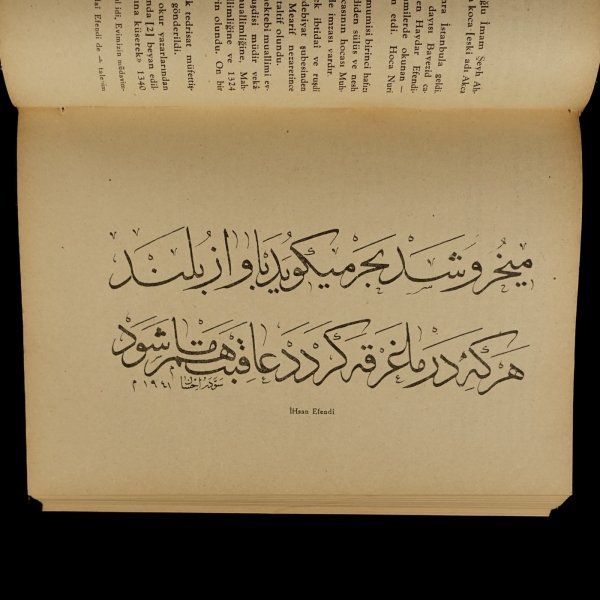 ğlu İmam Şeyh Ab-
a koca [eski adı Akça
nra İstanbula geldi.
dayısı Bayezid ca-
en Haydar Efendi-
umilerde okunan —
n etdi. Hoca Nuri
mumisi birinci hafız
diden sülüs ve nesh
casının hocası Muh-
de imzası vardır.
ek ibtidai ve ruşdî
debiyat şubesinden
Mearif nezaretince
taltif olundu.
ektebi muallimi ev-
uşdisi müdir vekâ-
uallimliğine, Mah-
llimliğine ve 1324
in olundu. On bir
k tedrisat müfettiş-
gönderildi.
okur yazarlarından
nda [2] beyan edil-
ına küserek» 1340
l idi, Evimizin müdavim-
Efendi de
میخروشد بحر میگوید باواز بلند
هر که در ما غرقه گردد عاقبت هم ما شود
سوده احسان ١٩٤١ م
İHsan Efendi